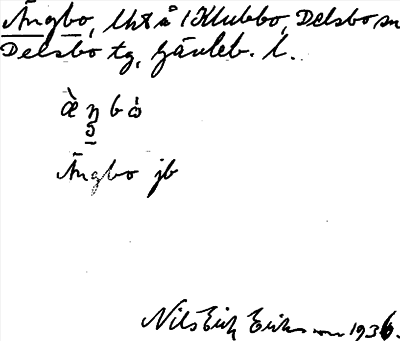 Ängbo, lht å 1 Klubbo, Delsbo sn
Delsbo tg, Gävleb. l.
Ängbo jb
Nils Erik Eriksson 1936.